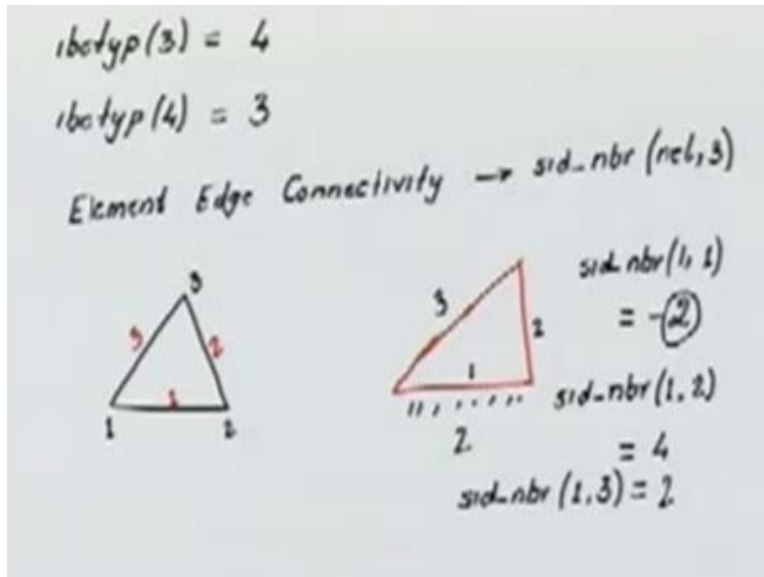 ibctyp(3) = 4
ibctyp(4) = 3
Element Edge Connectivity → sid_nbr(nel,3)
3
3 2
1
1 2
sid_nbr(1,1)
= -2
3 2
1
2
sid_nbr(1,2)
= 4
sid_nbr(1,3) = 2